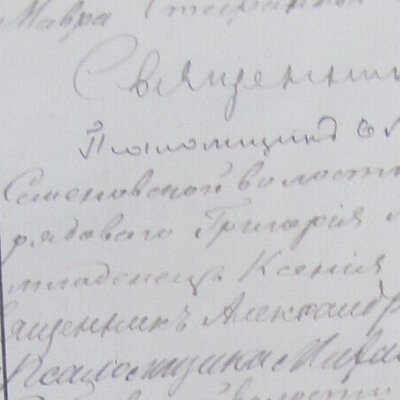 Мавра Стефанова
Священник
Псаломщикъ
Семеновской волости
рядоваго Григорія
младенецъ Ксенія
ващенникъ Александр
Псаломщика Миха